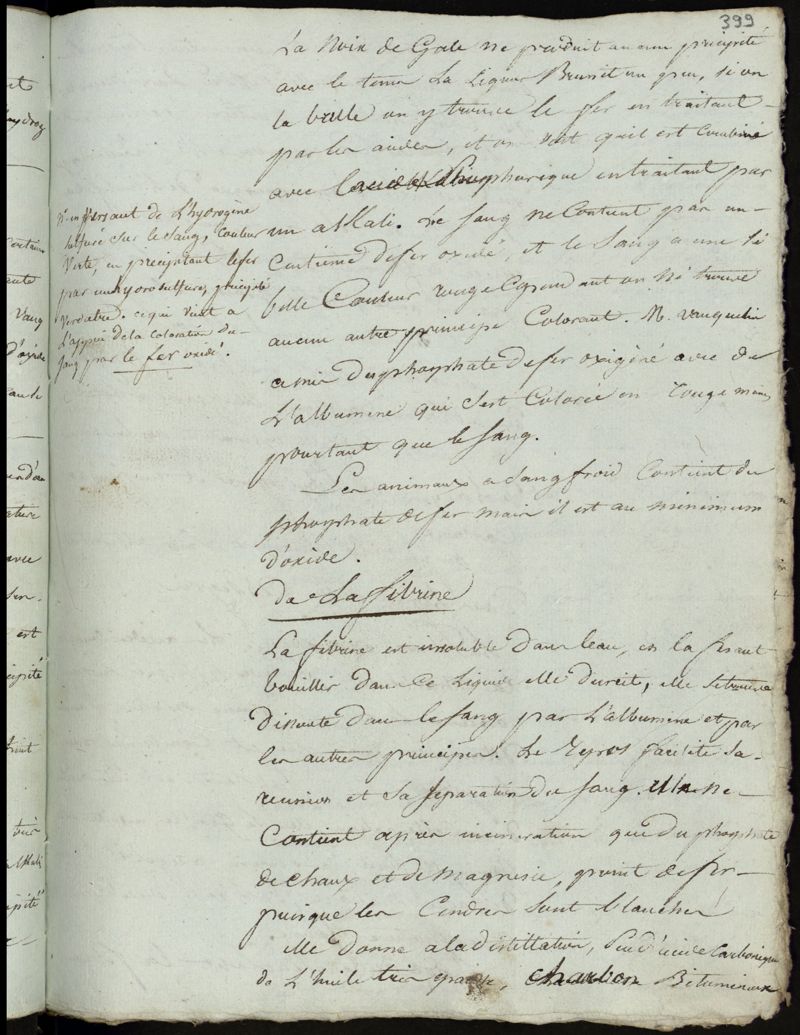 399
La Noix de Gale ne produit aucun précipité
avec le tems La Liqueur Brunit un peu, si on
la brule on y trouve le fer en traitant
par les acides, et on voit quil est Combiné
avec l'acide phosphorique en traitant par
un alkali. Le sang ne Contient pas un
Centieme de fer oxidé, et le Sang a une si
belle Couleur rouge Cependant on n'é trouve
aucun autre principe Colorant. M. Vauquelin
a mis du phosphate de fer oxigéné avec de
L'albumine qui s'est Colorée en rouge moins
pourtant que le sang.
Les animaux a sang froid Contient du
phosphate de fer mais il est au minimum
d'oxide.
De La fibrine
La fibrine est insoluble dans leau, en la fesant
bouillir dans Ce Liquide elle durcit, elle se trouve
Dissoute dans le sang par L'albumine et par
les autres principes. Le Repos facilite sa
reunion et sa separation du sang. Elle ne
Contient après incineration que du phosphate
de chaux et de magnesie, point de fer
puisque les Cendres sont blanches
elle donne a la distillation, peu d'acide Carbonique
de L'huile très epaisse, charbon Bitumineux
en versant de L'hydrogène
sulfuré sur le sang, Couleur
Verte, en precipitant le fer
par un hydrosulfure, précipité
Verdatre. ce qui vient a
L'appui de la coloration du
sang par le fer oxidé.